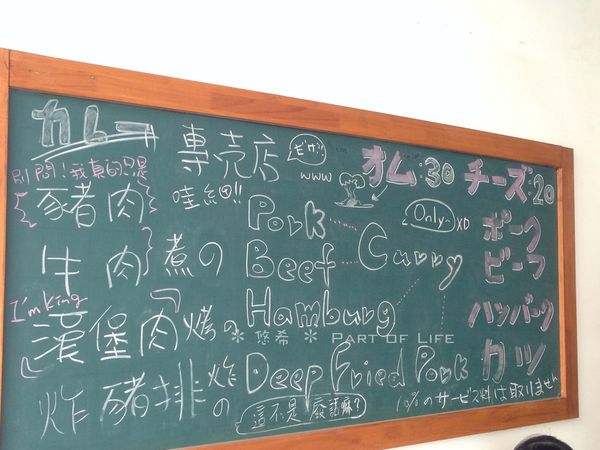 カレー 專売店 だけ!! www オム:30 チーズ:20
別問!我真的只是 哇細
豬肉 Pork Only~ XD ポーク
牛肉 煮の Beef Curry ビーフ
I'm king
漢堡肉 烤の Hamburg ハンバーグ
✻ 悠希 ✻ PART OF LIFE
炸豬排 炸の Deep Fried Pork カツ
這不是廢話嘛? 10%のサービス料は取りません